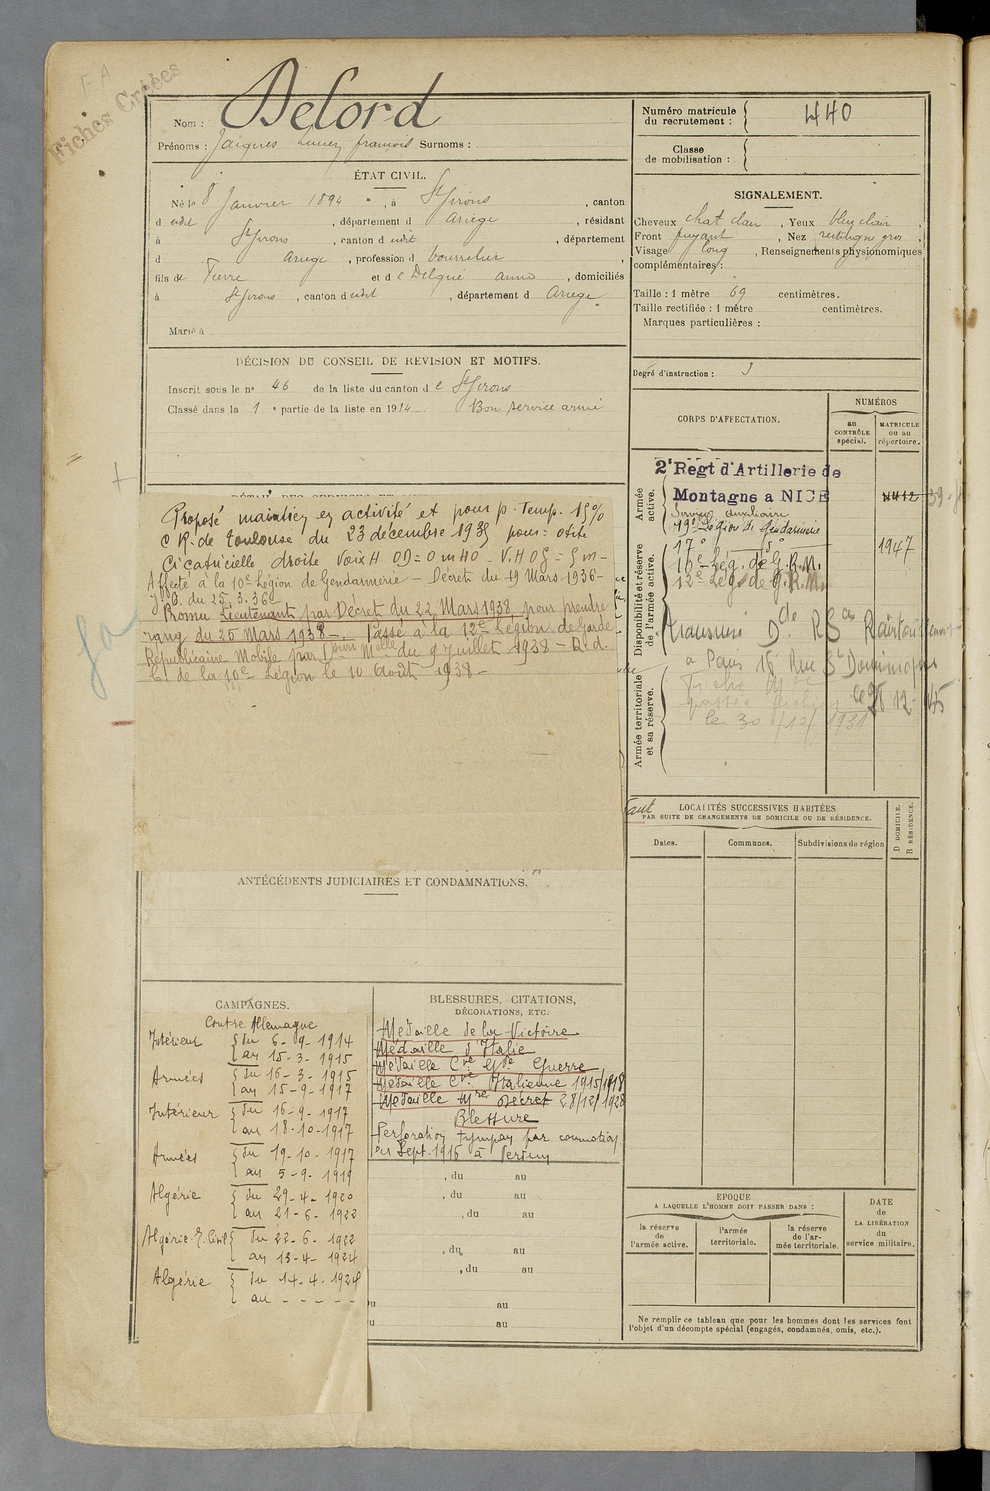 Fiches Créées
F A
Nom : Delord
Prénoms : Jacques françois Surnoms :
Numéro matricule
du recrutement : 440
Classe
de mobilisation :
ÉTAT CIVIL.
Né le 8 Janvier 1894 , à St Girons , canton
d udit , département d Ariège , résidant
à St Girons , canton d udit , département
d Ariège , profession d bourrelier ,
fils de Pierre et d e Delqué anna , domiciliés
à St Girons , canton d udit , département d Ariège
Marié à
SIGNALEMENT.
Cheveux chat clair , Yeux bleu clair ,
Front fuyant , Nez rectiligne gros ,
Visage long , Renseignements physionomiques
complémentaires :
Taille : 1 mètre 69 centimètres.
Taille rectifiée : 1 mètre centimètres.
Marques particulières :
Degré d'instruction : 3
DÉCISION DU CONSEIL DE REVISION ET MOTIFS.
Inscrit sous le no 46 de la liste du canton d e St Girons
Classé dans la 1 e partie de la liste en 1914 Bon service armé
CORPS D'AFFECTATION.
NUMÉROS
au
CONTRÔLE
spécial.
MATRICULE
ou au
répertoire.
Armée
active.
2e Régt d'Artillerie de
Montagne a NICE
4412
Services auxiliaire
19e Légion de Gendarmerie
Disponibilité et réserve
de l'armée active.
17e
1947
10e Lég. de G.R.M.
12e Lég. de G.R.M.
a Paris Rue St Dominique
Armée territoriale
et sa réserve.
Fiche
le 30 /12/ 1931
Proposé maintien en activité et pour p. Temp. 15%
C R. de Toulouse du 23 décembre 1935 pour: otite
Cicatricielle droite Voix H OD = 0m40 - V.H OG = 5m-
Affecté à la 10e Légion de Gendarmerie - Décret du 19 Mars 1936-
J.O. du 25.3.36-
Promu Lieutenant par Décret du 22 Mars 1938 pour prendre
rang du 25 Mars 1938 -. Passé à la 12e Légion de Garde
Républicaine Mobile par Don Mlle du 9 Juillet 1938 - R. d.
C. de la 10e Légion le 10 Août 1938 -
LOCALITÉS SUCCESSIVES HABITÉES
PAR SUITE DE CHANGEMENTS DE DOMICILE OU DE RÉSIDENCE.
Dates.
Communes.
Subdivisions de région
D DOMICILE.
R RÉSIDENCE.
ANTÉCÉDENTS JUDICIAIRES ET CONDAMNATIONS.
CAMPAGNES.
Contre Allemagne
Intérieur { du 6-9-1914
au 15-3-1915
Armées { du 16-3-1915
au 15-9-1917
Intérieur { du 16-9-1917
au 18-10-1917
Armées { du 19-10-1917
au 5-9-1919
Algérie { du 29-4-1920
au 21-6-1922
Algérie { du 22-6-1922
au 13-4-1924
Algérie { du 14-4-1924
au - - - - -
BLESSURES, CITATIONS,
DÉCORATIONS, ETC.
Médaille de la Victoire
Médaille d'Italie
Médaille Cve Gde Guerre
Médaille Cve Italienne 1915/1918
Médaille Mre Décret 28/12/1928
Blessure
Perforation tympan par commotion
en Sept. 1916 à
, du au
, du au
, du au
, du au
, du au
du au
du au
EPOQUE
A LAQUELLE L'HOMME DOIT PASSER DANS :
la réserve
de
l'armée active.
l'armée
territoriale.
la réserve
de l'ar-
mée territoriale.
DATE
de
LA LIBÉRATION
du
service militaire.
Ne remplir ce tableau que pour les hommes dont les services font
l'objet d'un décompte spécial (engagés, condamnés, omis, etc.).